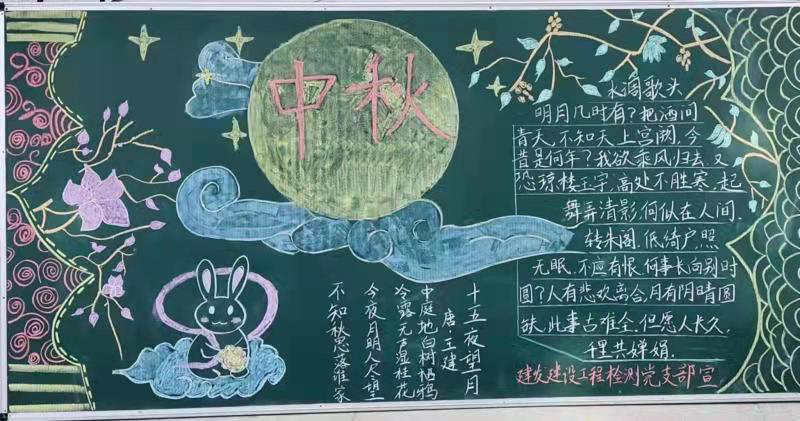 中秋
水调歌头
明月几时有？把酒问
青天，不知天上宫阙，今
昔是何年？我欲乘风归去，又
恐琼楼玉宇，高处不胜寒，起
舞弄清影，何似在人间，
转朱阁，低绮户，照
无眠，不应有恨，何事长向别时
圆？人有悲欢离合，月有阴晴圆
缺，此事古难全，但愿人长久，
千里共婵娟．
建发建设工程检测党支部宣
十五夜望月
唐 王建
中庭地白树栖鸦
冷露无声湿桂花
今夜月明人尽望
不知秋思落谁家